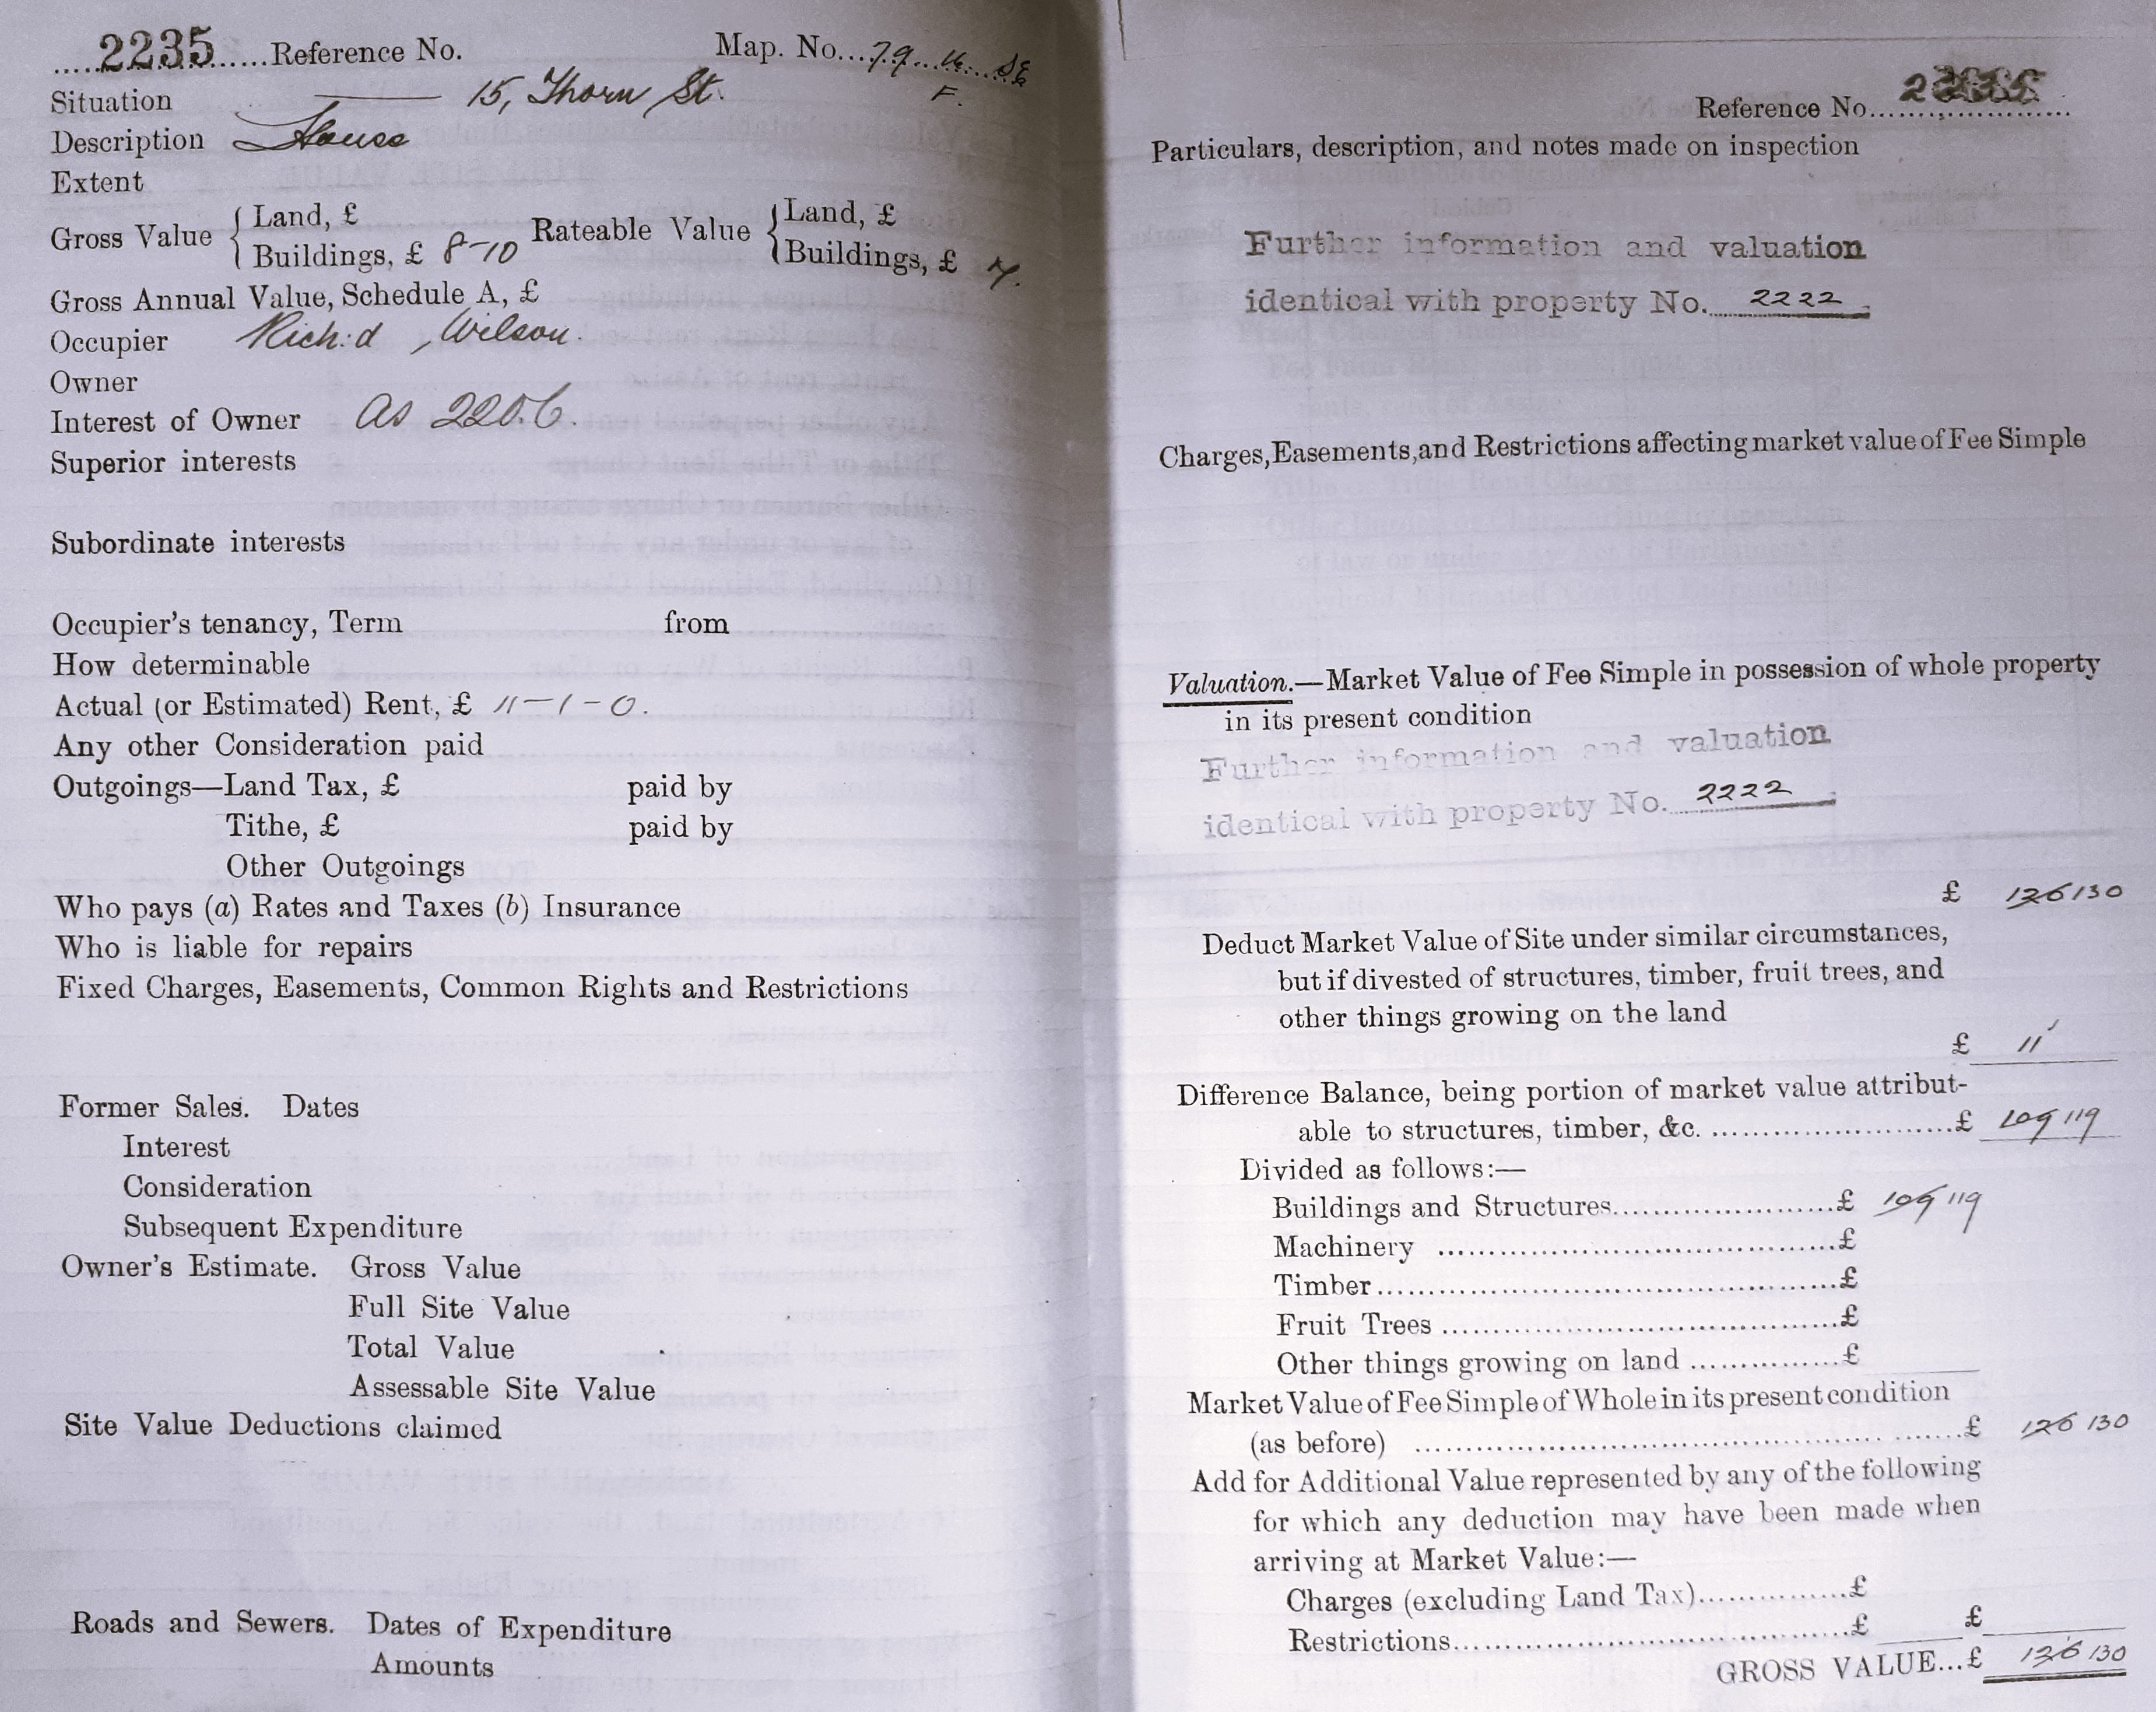 2235 Reference No. Map. No. 79. 16. SE
F.
Situation 15, Thorn St.
Description House
Extent
Gross Value { Land, £ Rateable Value { Land, £
Buildings, £ 8-10 Buildings, £ 7.
Gross Annual Value, Schedule A, £
Occupier Rich:d Wilson.
Owner
Interest of Owner As 2206.
Superior interests
Subordinate interests
Occupier's tenancy, Term from
How determinable
Actual (or Estimated) Rent, £ 11-1-0.
Any other Consideration paid
Outgoings—Land Tax, £ paid by
Tithe, £ paid by
Other Outgoings
Who pays (a) Rates and Taxes (b) Insurance
Who is liable for repairs
Fixed Charges, Easements, Common Rights and Restrictions
Former Sales. Dates
Interest
Consideration
Subsequent Expenditure
Owner's Estimate. Gross Value
Full Site Value
Total Value
Assessable Site Value
Site Value Deductions claimed
Roads and Sewers. Dates of Expenditure
Amounts
Reference No.
Particulars, description, and notes made on inspection
Further information and valuation
identical with property No. 2222.
Charges, Easements, and Restrictions affecting market value of Fee Simple
Valuation.—Market Value of Fee Simple in possession of whole property
in its present condition
Further information and valuation
identical with property No. 2222.
£ 130
Deduct Market Value of Site under similar circumstances,
but if divested of structures, timber, fruit trees, and
other things growing on the land
£ 11
Difference Balance, being portion of market value attribut-
able to structures, timber, &c. £ 109 119
Divided as follows:—
Buildings and Structures £ 109 119
Machinery £
Timber £
Fruit Trees £
Other things growing on land £
Market Value of Fee Simple of Whole in its present condition
(as before) £ 130
Add for Additional Value represented by any of the following
for which any deduction may have been made when
arriving at Market Value:—
Charges (excluding Land Tax) £
Restrictions £ £
GROSS VALUE...£ 130